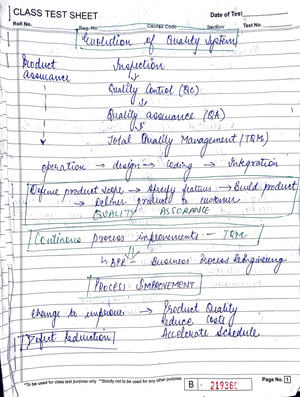 CLASS TEST SHEET
Date of Test
Roll No.
Reg. No.
Course Code
Section
Test No.
Evolution of Quality System
Product Inspection
assurance
Quality Control (QC)
Quality assurance (QA)
Total Quality Management (TQM)
operation → design → Coding → Integration
Define product scope → specify features → Build product
→ Deliver products to customer
QUALITY ASSURANCE
Continous process improvements - TQM
BPR - Business Process ReEngineering
PROCESS IMPROVEMENT
change to improve → Product Quality
Reduce Costs
Accelerate Schedule
Defect Reduction
*To be used for class test purpose only **Strictly not to be used for any other purpose.
B
Page No. 1